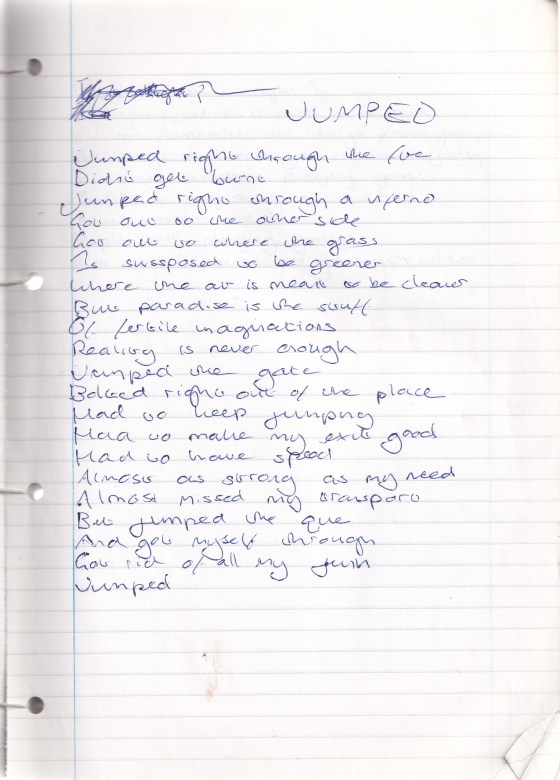 JUMPED
Jumped right through the fire
Didnt get burnt
Jumped right through a inferno
Got out to the other side
Got out to where the grass
Is sussposed to be greener
Where the air is meant to be cleaner
But paradise is the stuff
Of fertile imaginations
Reality is never enough
Jumped the gate
Bolted right out of the place
Had to keep jumping
Had to make my exit good
Had to have speed
Almost as strong as my need
Almost missed my transport
But jumped the que
And got myself through
Got rid of all my junk
Jumped